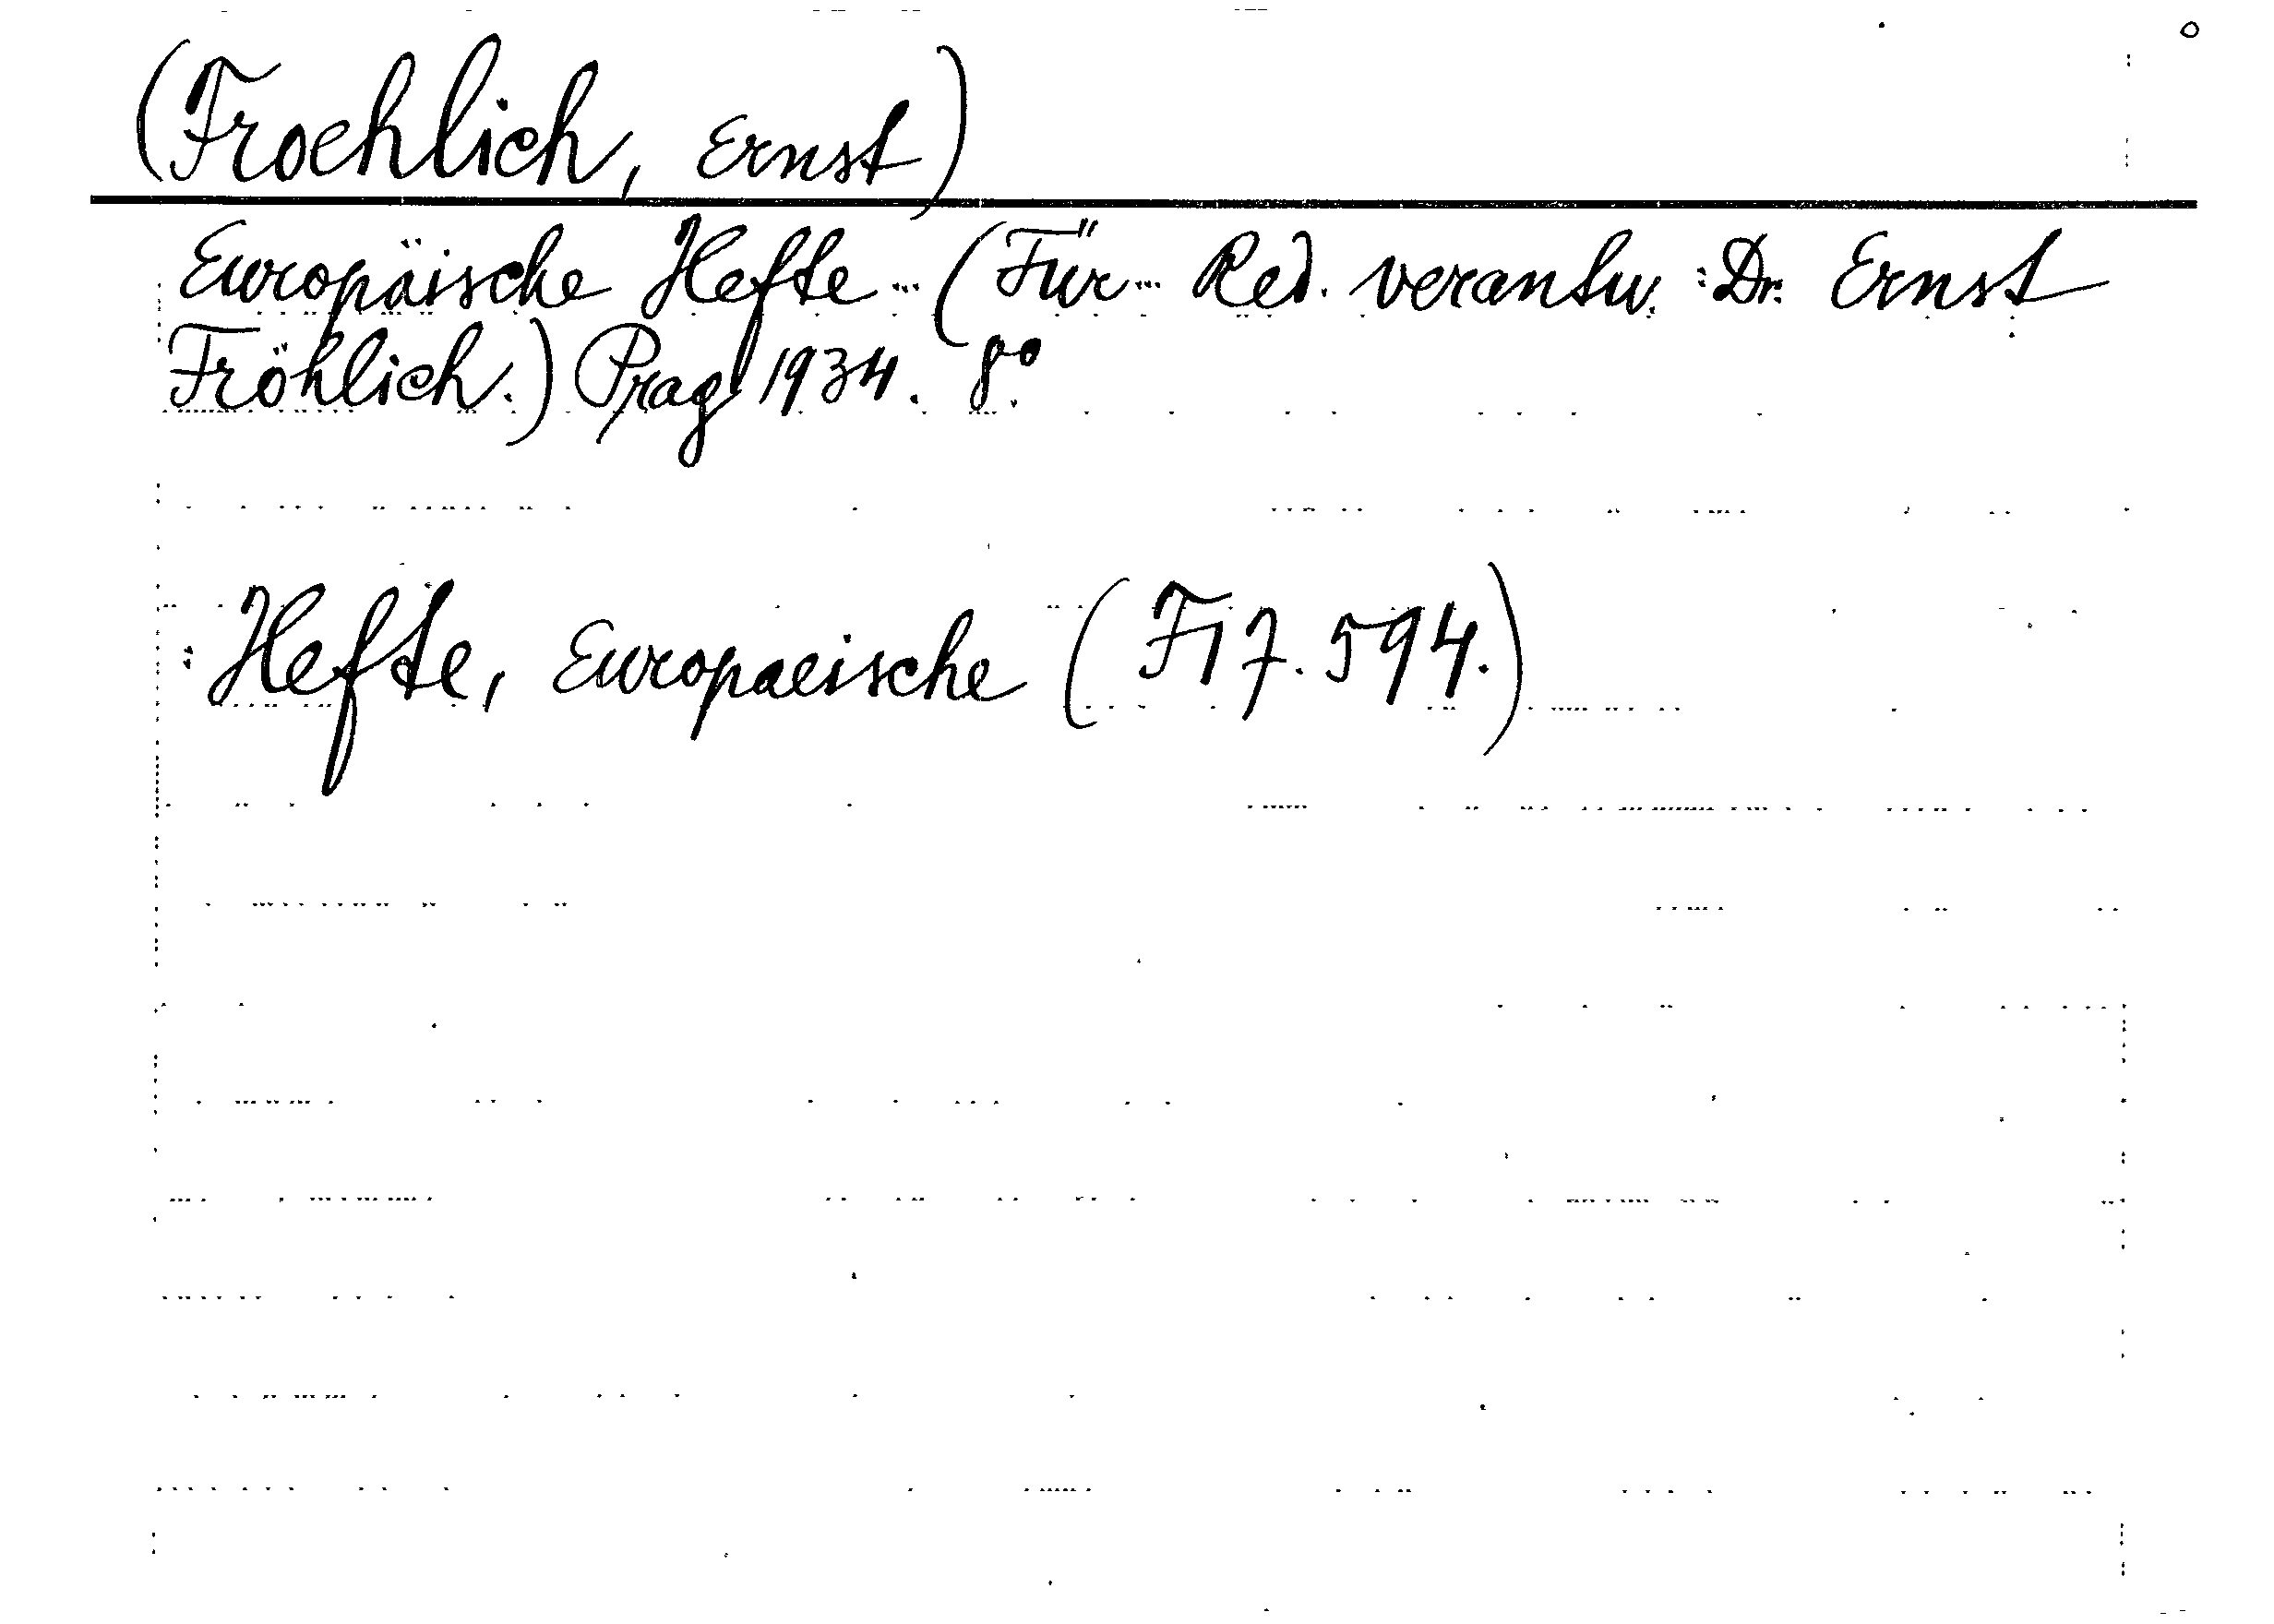 (Froehlich, Ernst)
Europäische Hefte... (Für... Red. verantw.: Dr. Ernst
Fröhlich.) Prag 1934. 8°.
: Hefte, Europaeische (Fi 7.594.)